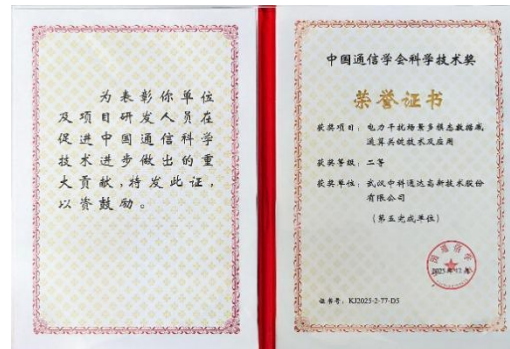 为表彰你单位
及项目研发人员在
促进中国通信科学
技术进步做出的重
大贡献，特发此证，
以资鼓励。
中国通信学会科学技术奖
荣誉证书
获奖项目：电力干扰场景多模态数据感
通算关键技术及应用
获奖等级：二等
获奖单位：武汉中科通达高新技术股份
有限公司
（第五完成单位）
2025年12月
证书号：KJ2025-2-77-D5